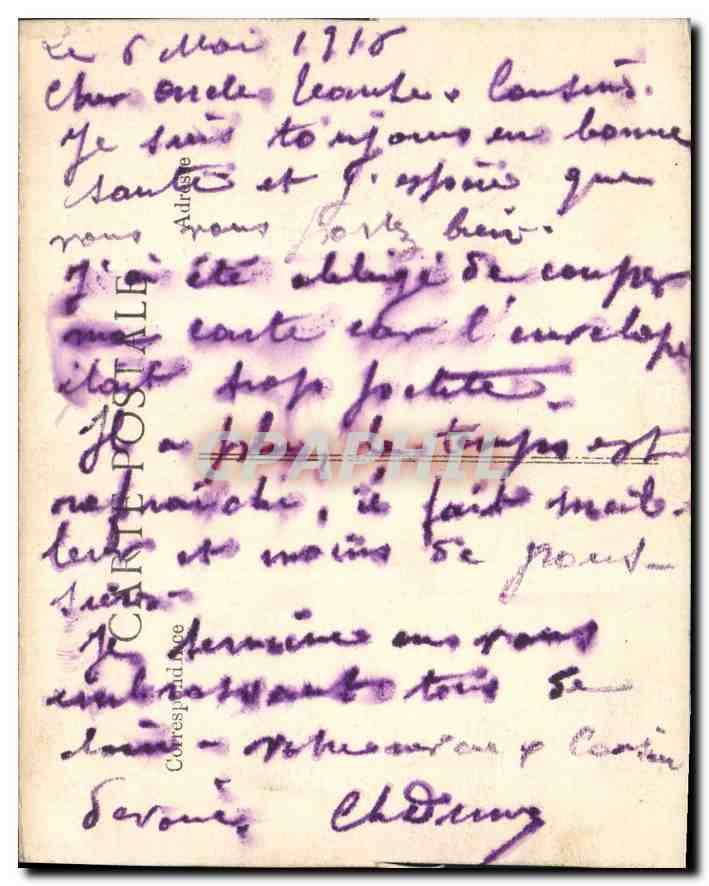 Le 6 Mai 1916
Cher oncle tante & Cousins.
Je suis toujours en bonne
santé et j'espère que
vous vous portez bien.
J'ai été obligé de couper
ma carte car l'envelope
était trop petite.
Il a plu, le temps est
rafraichi, il fait meil-
leur et moins de pous-
sière.
Je termine en vous
embrassant tous de
votre neveu & Cousin
devoué,
CARTE POSTALE
Correspondance
Adresse
CPAPHIL